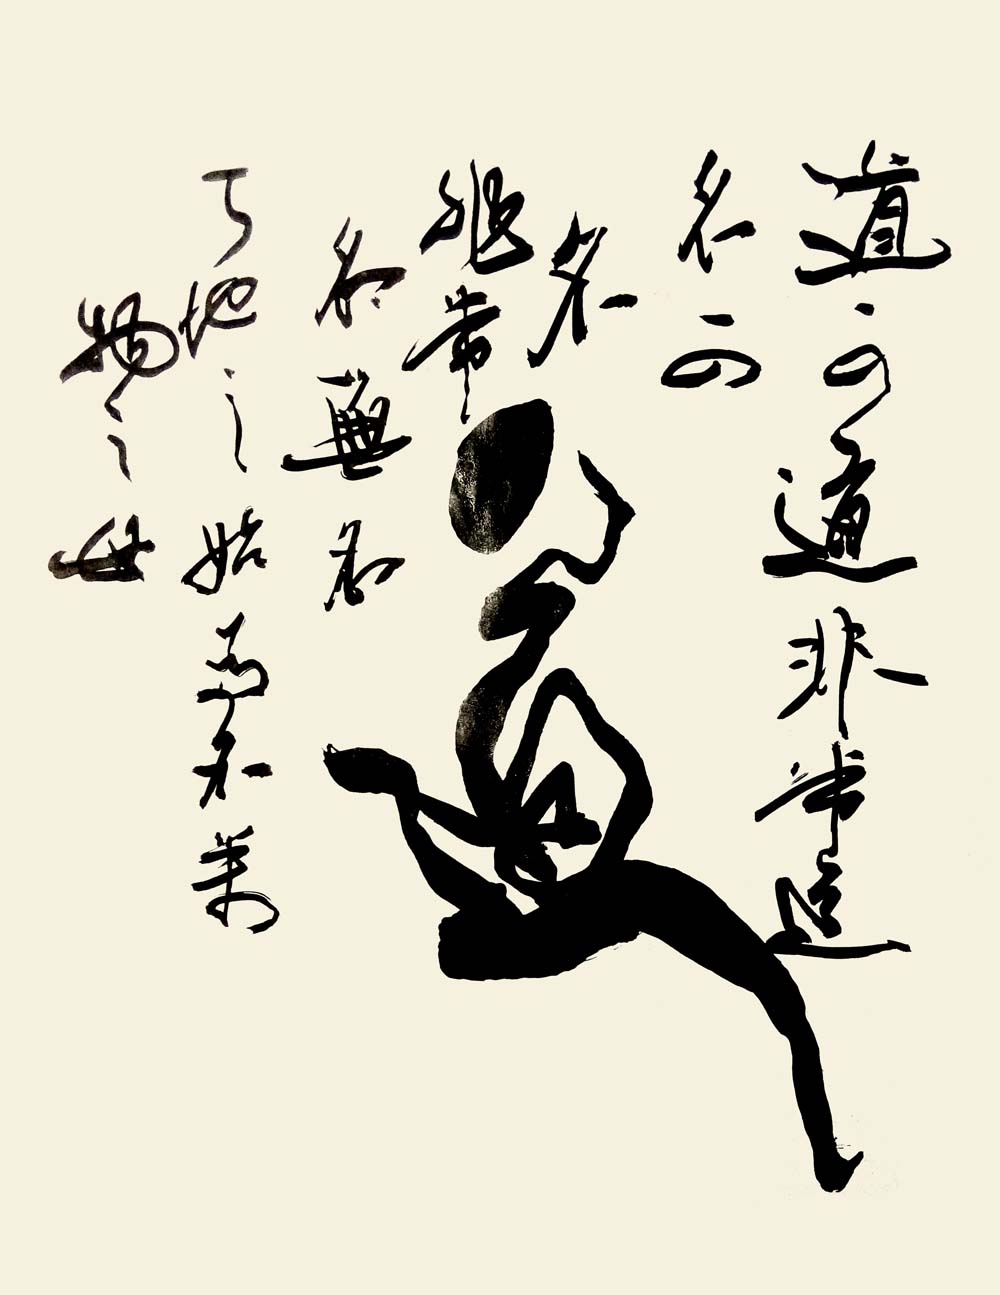 道可道非常道
名可
名
非常
名無名
天地之始有名萬
物之母